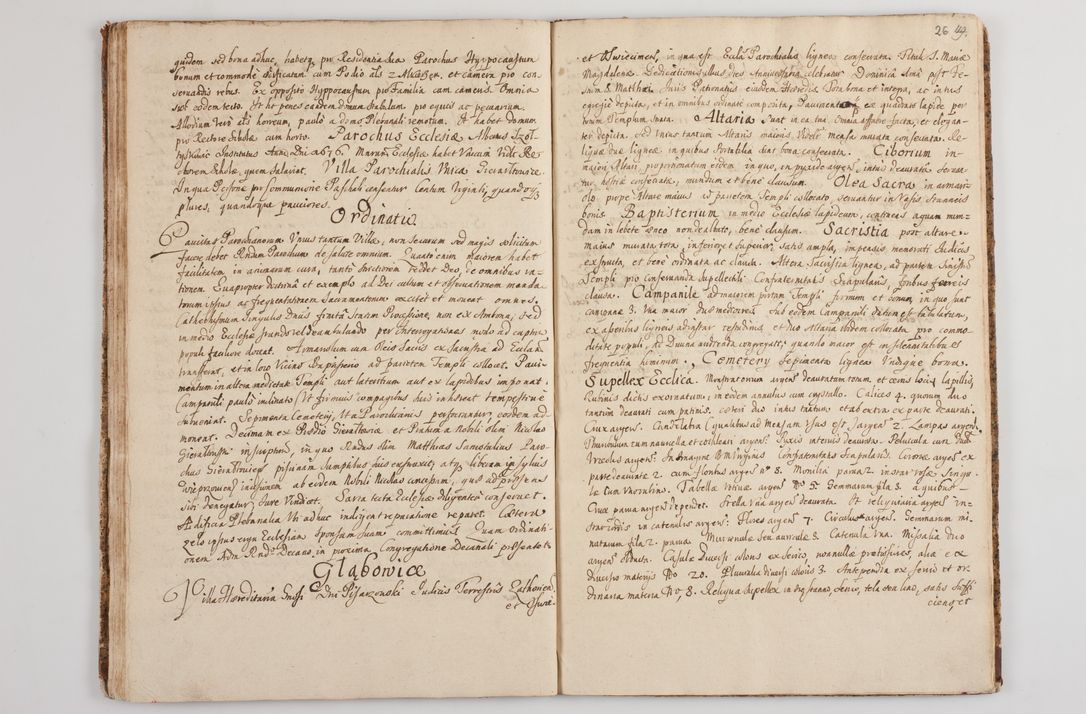 quidem sed bona adhuc, habetq pro Residentia sua Parochus Hyppocaustum
bonum et commode ædificatum cum Podio als z Alkierzem, et camera pro con-
servandis rebus. Ex opposito Hyppocaustum pro Familia cum cameris. Omnia
sub eodem tecto. At hic penes eandem domum stabulum pro equis ac pecuarum.
Allodium vero et horreum, paulo a domo Plebanali remotum. Et habet domum
pro Rectore Scholæ cum horto. Parochus Ecclesiæ Albertus
Institutus Anno Dni 1676. Harum Ecclesia habet Vicarium Vide Re-
ctorem Scholæ, quem salariat. Villa Parochialis Unica Gieraltowice.
In qua Personæ pro Communione Paschali censentur Centum Viginti, quandoq
plures, quandoque pauciores.
Ordinatio
Paucitas Parochianorum Unius tantum Villæ, non securum sed magis solicitum
facere debet Rndum Parochum de salute omnium. Quanto enim maiorem habet
facilitatem in animarum cura, tanto strictiorem reddet Deo, de omnibus ra-
tionem. Quapropter doctrina et exemplo ad Dei cultum et observationem manda-
torum ipsius ac frequentationem Sacramentorum excitet et moveat omnes.
Cathechismum singulis Dnis finita Statim Processione, non ex Ambona, sed
in medio Ecclesiæ stando vel deambulando per Interrogationes modo ad captum
populi faciliore doceat. Armariolum cum Oleis Sacris ex Sacristia ad Eccliam
transferat, et in loco Vicino Baptisterio ad parietem Templi collocet. Pavi-
mentum in altera medietate Templi aut lateritium aut ex lapidibus imponat.
Campanili paulo inclinato (Ut firmius compagibus suis inhæreat) tempestive
subveniat. Sepimenta Cemeterij, Ut a Parochianis perficiantur, eosdem ad-
moneat. Decimam ex Prædio Gieraltovia et Pratum a Nobili olim Nicolao
Gieraltowski inscriptum, in quo Rndus olim Matthias Parochus
Gieraltovicen piscinam sumptibus suis exstruxit, atq liberam in sylvis
incisionem ab eodem Nobili Nicolao concessam, quæ ad præsens
sibi denegatur, Jure Vindicet. Sarta tecta Ecclesiæ diligenter conservet.
Ædificia Plebanalia Ubi adhuc indigent reparatione reparet. Cætera
zelo ipsius erga Ecclesiam Sponsam suam committimus. Quam Ordinati-
onem Adm Rndo Decano, in proxima Congregatione Decanali præsentet.
Głąbowice
Villa Hæreditaria Gnsi Dni Pisarzowski Judicis Terrestris Zathorien
et Oswie-
26 49
et Oswiecimen, in qua est Eccla Parochialis lignea consecrata Tituli S. Mariæ
Magdalenæ. Dedicationis illius dies Anniversaria celebratur Dominica Ima post Fe-
stum S. Matthæi. Juris Patronatus eiusdem Hæredis. Tota bona et integra, ac intus
egregie depicta, et in omnibus ordinate composita, Pavimentum ex quadrat lapide per
totum Templum strata. Altaria sunt in ea tria, Omnia affabre facta, et elegan-
ter depicta. Sed unius tantum Altaris maioris Videlt mensa murata consecrata. Re-
liquæ duæ ligneæ, in quibus Portatilia sunt bona consecrata. Ciborium in-
maiori Altari proportionatum eidem in quo, in pyxide argen, intus deaurata serva-
tur hostiæ consecratæ, mundum et bene clausum. Olea Sacra in armari-
olo prope Altare maius ad parietem Templi collocato, servantur in Vasis stanneis
bonis. Baptisterium in medio Ecclesiæ lapideum, continens aquam mun-
dam in lebete æneo non dealbato, bene clausum. Sacristia post altare
maius murata tota, inferior et superior, satis ampla, impensis memorati Judicis
exstructa, et bene ordinata ac clausa. Altera Sacristia lignea, ad partem sinistram
Templi pro conservanda supellectili Confraternitatis Scapularis, foribus ferreis
clausa. Campanile ad maiorem portam Templi firmum et bonum, in quo sunt
campanæ 3. Una maior duæ mediocres. Sub eodem Campanili datum est tabulatum,
ex asseribus ligneis ad instar testudinis, et duo Altaria ibidem collocata pro commo-
ditate populi, ad Divina audienda congregati, quando maior est in solennitatibus
frequentia hominum. Cemetery Sepimenta lignea Undique bona.
Supellex Ecclica. Monstrantorium argen deauratum totum, et certis locis lapillis,
Rubinis dictis exornatum, in eodem annulus cum crystallo. Calices 4. quorum duo
tantum deaurati cum patinis. ceteri duo intus tantum et ab extra ex parte deaurati.
Crux argen. Candelabra (quælibet ad mensam Usus est) argen 2. Lampas argen.
Thuribulum cum navicella et cochleari argen. Pyxis interius deaurata. Pelvicula cum
Urceolis argen. In Imagine BM Virginis Confraternitatis Scapularis. Coronæ argen ex
parte deauratæ 2. cum floribus argen No 8. Monilia parva 2. instar rosæ singu-
læ cum Unionibus. Tabellæ votivæ argen No 5. Gemmarum fila 3. a quibus
Crux parva argen dependet. Stella Una argen deaurata. Et reliquiaria argen in-
star cordis in catenulis argen. Flores argen 7. Circulus argen. Gemmarum mi-
nutarum fila 2. parva. Murenulæ seu auriculæ 3. Catenula Una. Missalia duo
argen obducta. Casulæ Diversi coloris ex serico, nonnullæ pretiosiores, aliæ ex
diversis materijs No 20. Pluvialia diversi coloris 3. Antependia ex serico et or-
dinaria materia No, 8. Reliqua Supellex in stanno, serico, tela seu lino, satis suffi-
ciens, et